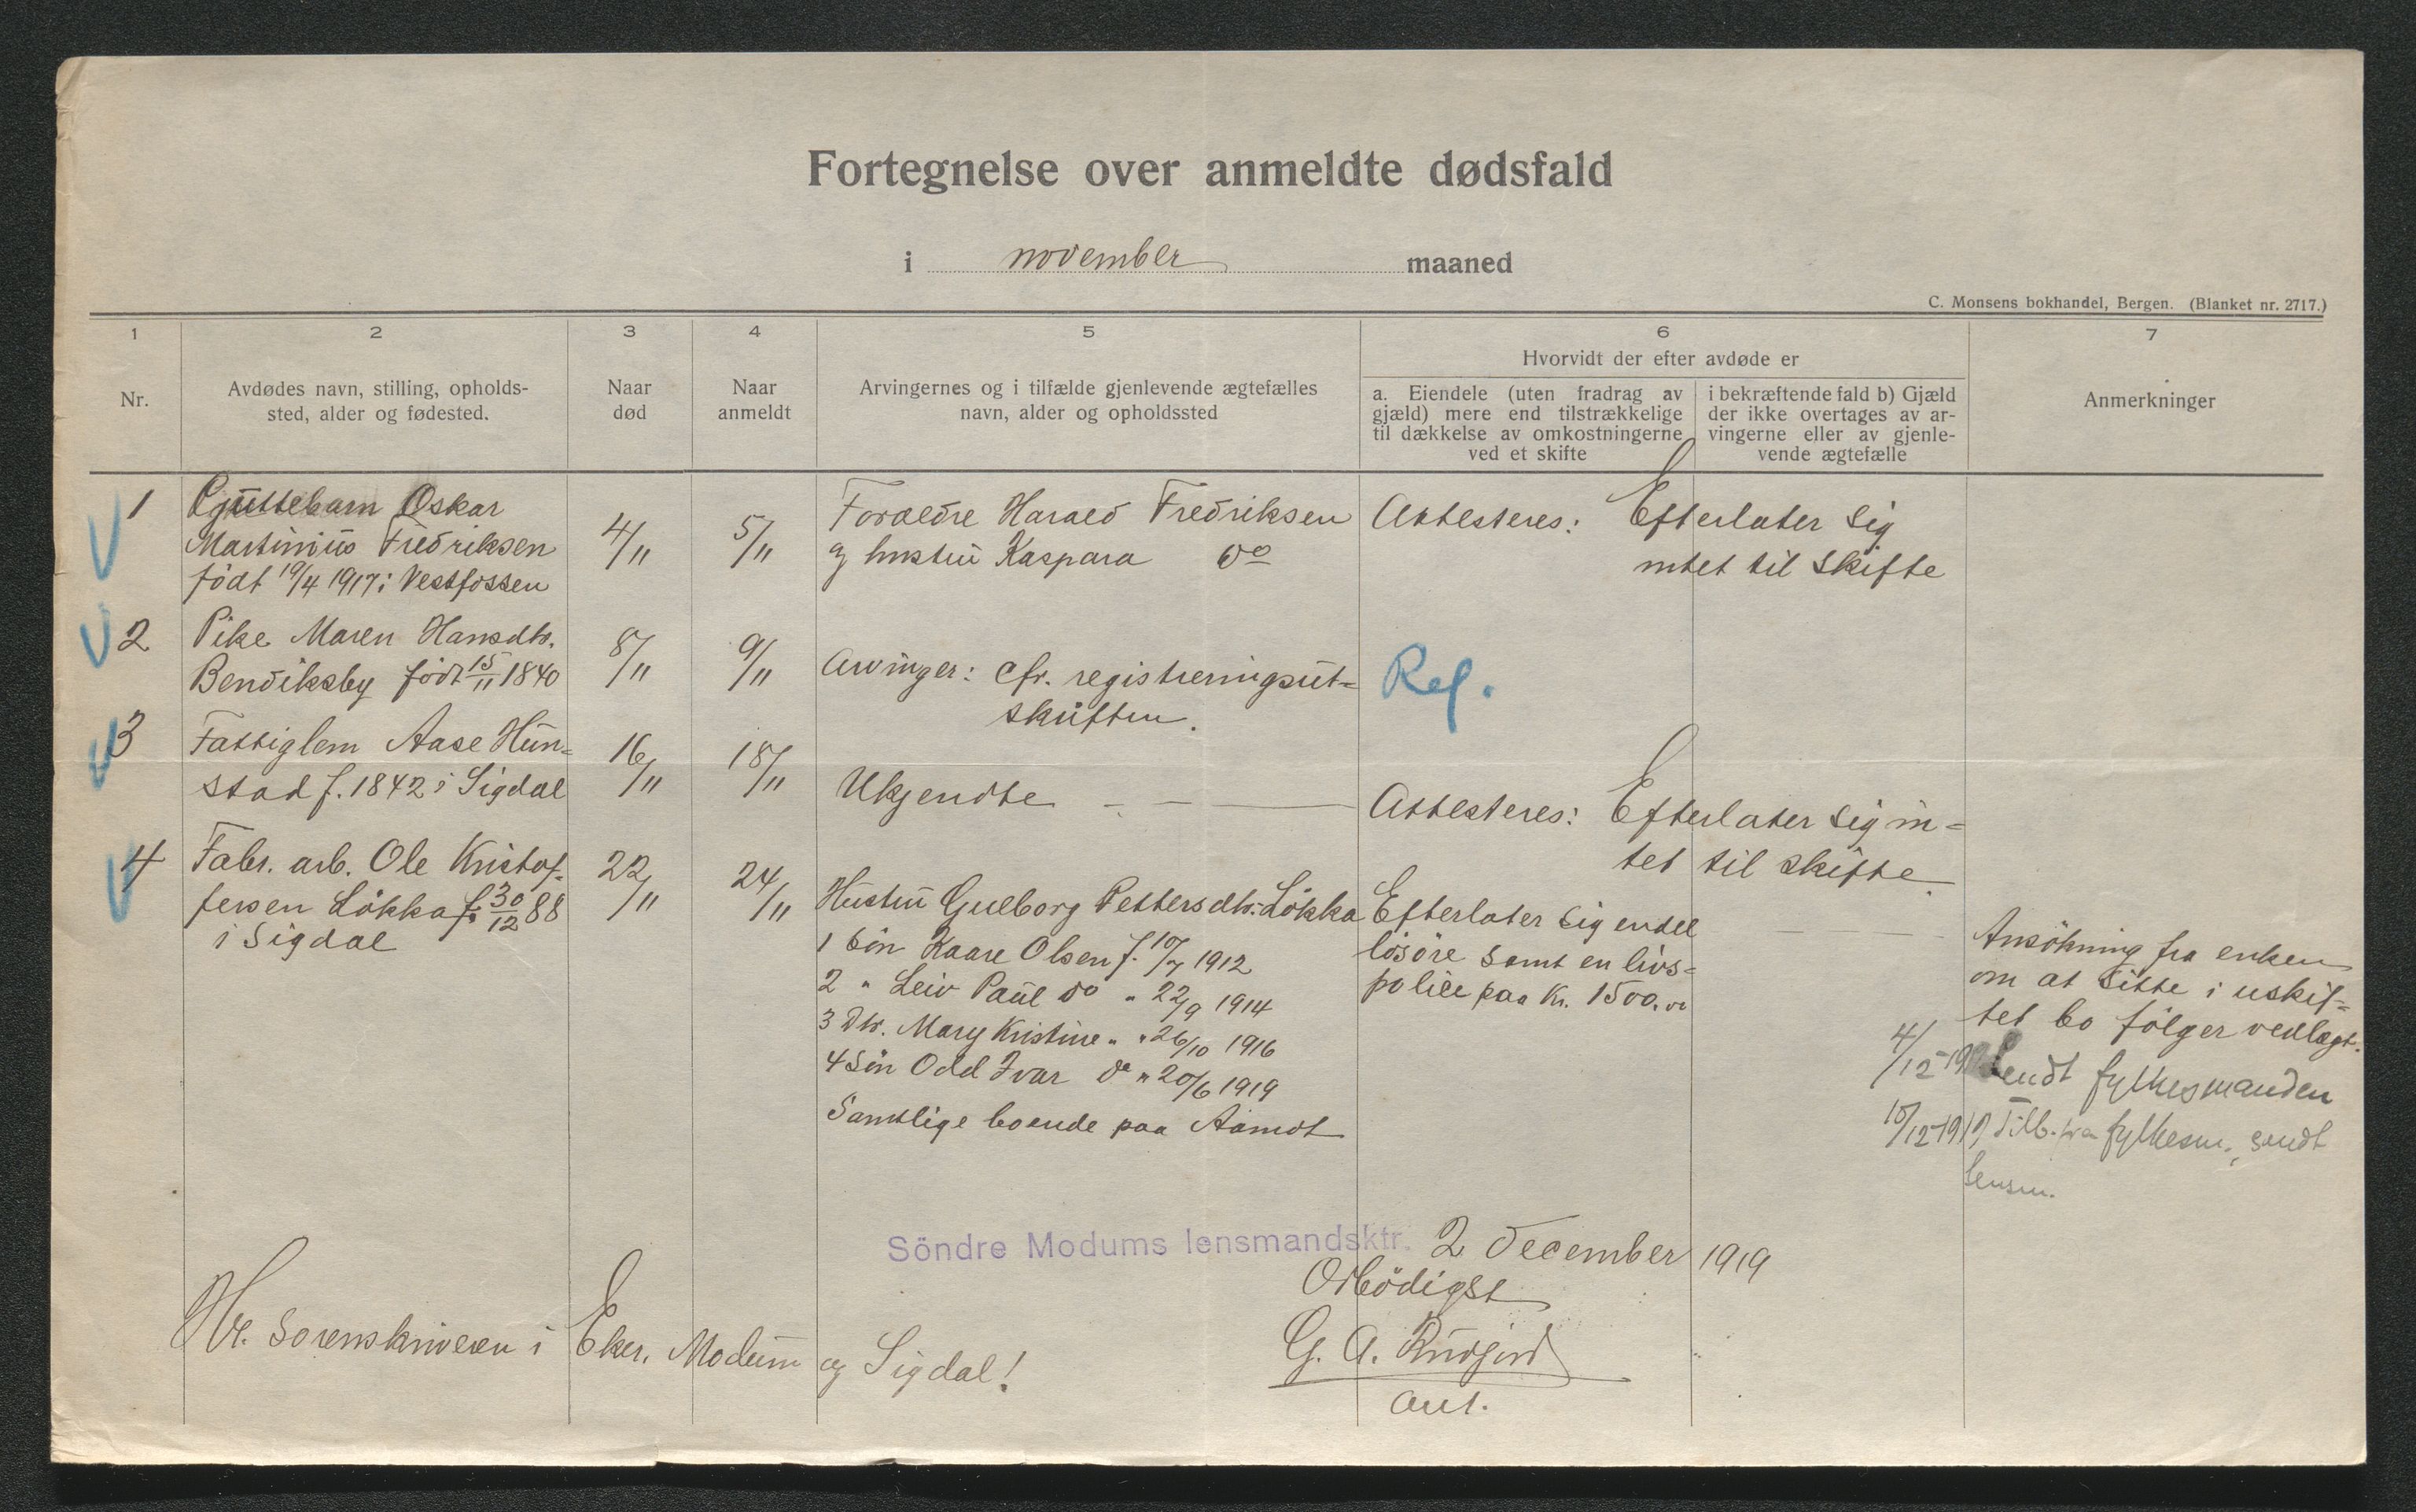 Fortegnelse over anmeldte dødsfald
i november maaned
C. Monsens bokhandel, Bergen. (Blanket nr. 2717.)
1 2 3 4 5 6 7
Nr.
Avdødes navn, stilling, opholds-
sted, alder og fødested.
Naar
død
Naar
anmeldt
Arvingernes og i tilfælde gjenlevende ægtefælles
navn, alder og opholdssted
Hvorvidt der efter avdøde er
a. Eiendele (uten fradrag av
gjæld) mere end tilstrækkelige
til dækkelse av omkostningerne
ved et skifte
i bekræftende fald b) Gjæld
der ikke overtages av ar-
vingerne eller av gjenle-
vende ægtefælle
Anmerkninger
1
Guttebarn Oskar
Martinius Fredriksen
født 19/4 1917 i Vestfossen
4/11
5/11
Forældre Harald Fredriksen
og hustru Kaspara do
Attesteres: Efterlater sig
intet til skifte
2
Pike Maren Hansdtr.
Bendiksby født 15/11 1840
8/11
9/11
Arvinger: cfr. registreringsut-
skriften.
Ref.
3
Fattiglem Aase Hun-
stad f. 1842 i Sigdal
16/11
18/11
Ukjendte
Attesteres: Efterlater sig in-
tet til skifte.
4
Fabr. arb. Ole Kristof-
fersen Løkka f. 30/12 88
i Sigdal
22/11
24/11
Hustru Gulborg Pettersdtr. Løkka
1 Søn Kaare Olsen f. 10/7 1912
2 " Leiv Paul do " 22/9 1914
3 Dtr. Mary Kristine " " 26/10 1916
4 Søn Odd Ivar do " 20/6 1919
Samtlige boende paa Aamot
Efterlater sig endel
løsøre samt en livs-
polise paa Kr. 1500.00
Ansökning fra enken
om at sitte i uskif-
tet bo følger vedlagt.
4/12-19 Sendt fylkesmanden
10/12-1919 Tilb. fra fylkesm., sendt
lensm.
Söndre Modums lensmandsktr. 2 december 1919
Ærbödigst
G. A.
Hr. Sorenskriveren i Eker, Modum og Sigdal!